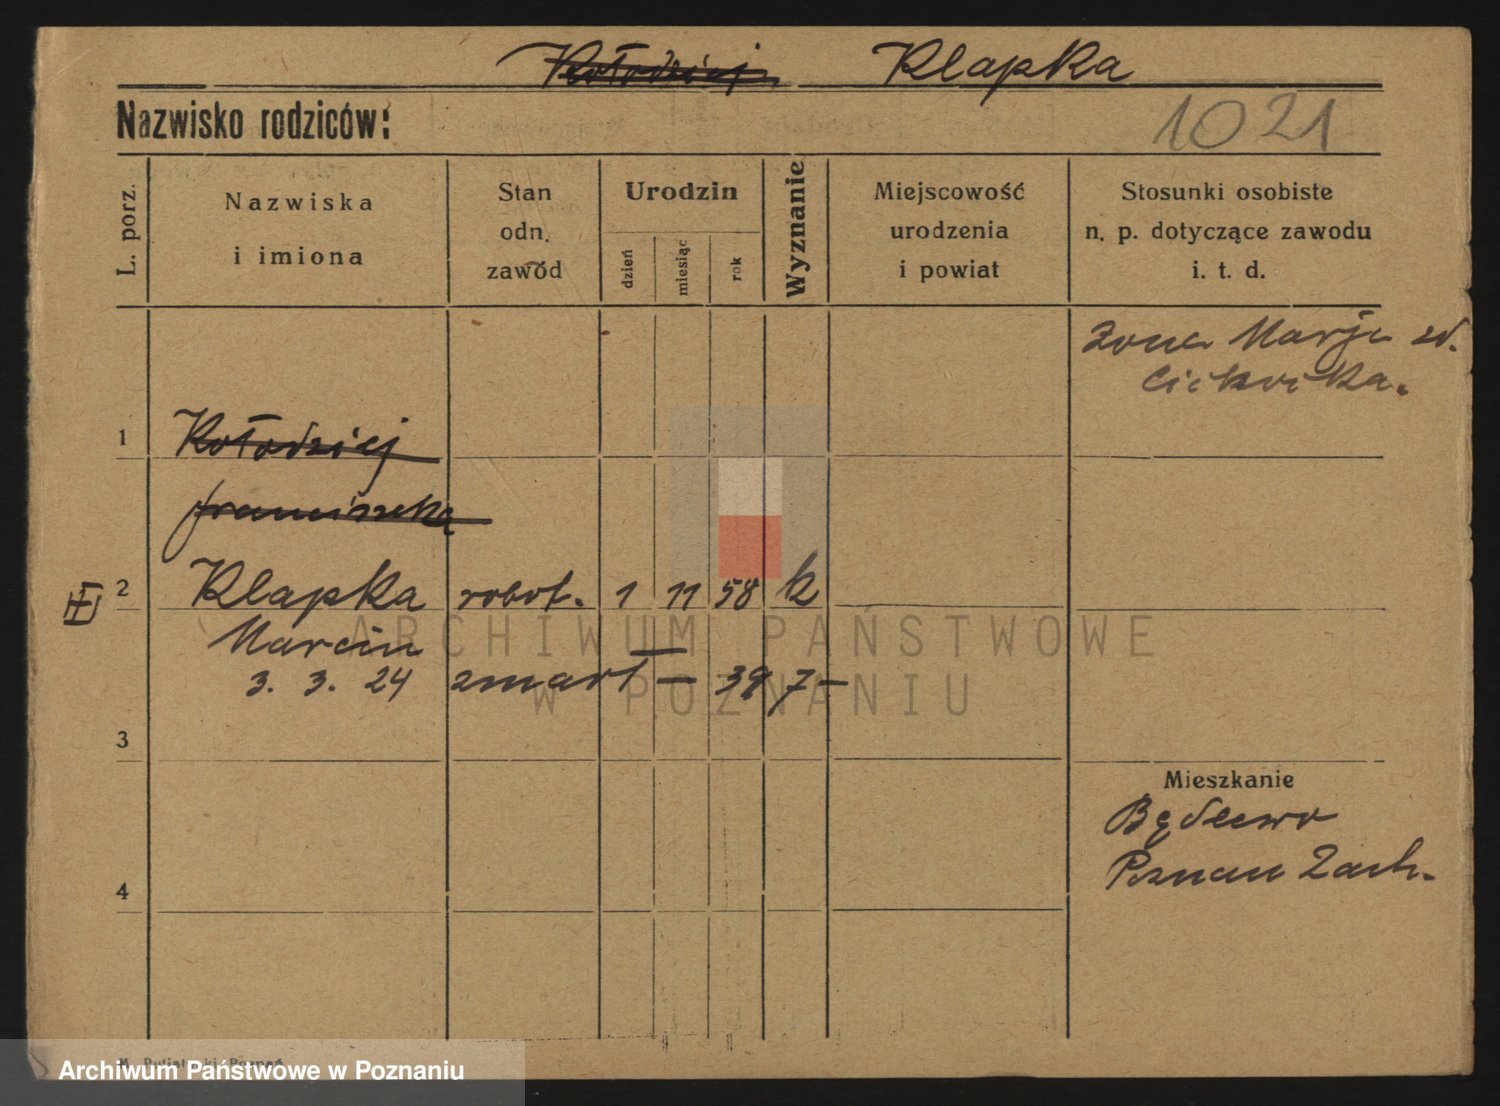 Kołodziej Klapka
Nazwisko rodziców:
1021
L. porz.
Nazwiska
i imiona
Stan
odn.
zawód
Urodzin
dzień
miesiąc
rok
Wyznanie
Miejscowość
urodzenia
i powiat
Stosunki osobiste
n. p. dotyczące zawodu
i. t. d.
żona Marja zd.
1
Kołodziej
Franciszka
2
Klapka robot. 1 11 58 k
Marcin
3. 3. 24 zmarł — 39 7 —
3
Mieszkanie
Będlewo
Poznań Zach.
4
ARCHIWUM PAŃSTWOWE
W POZNANIU
Archiwum Państwowe w Poznaniu